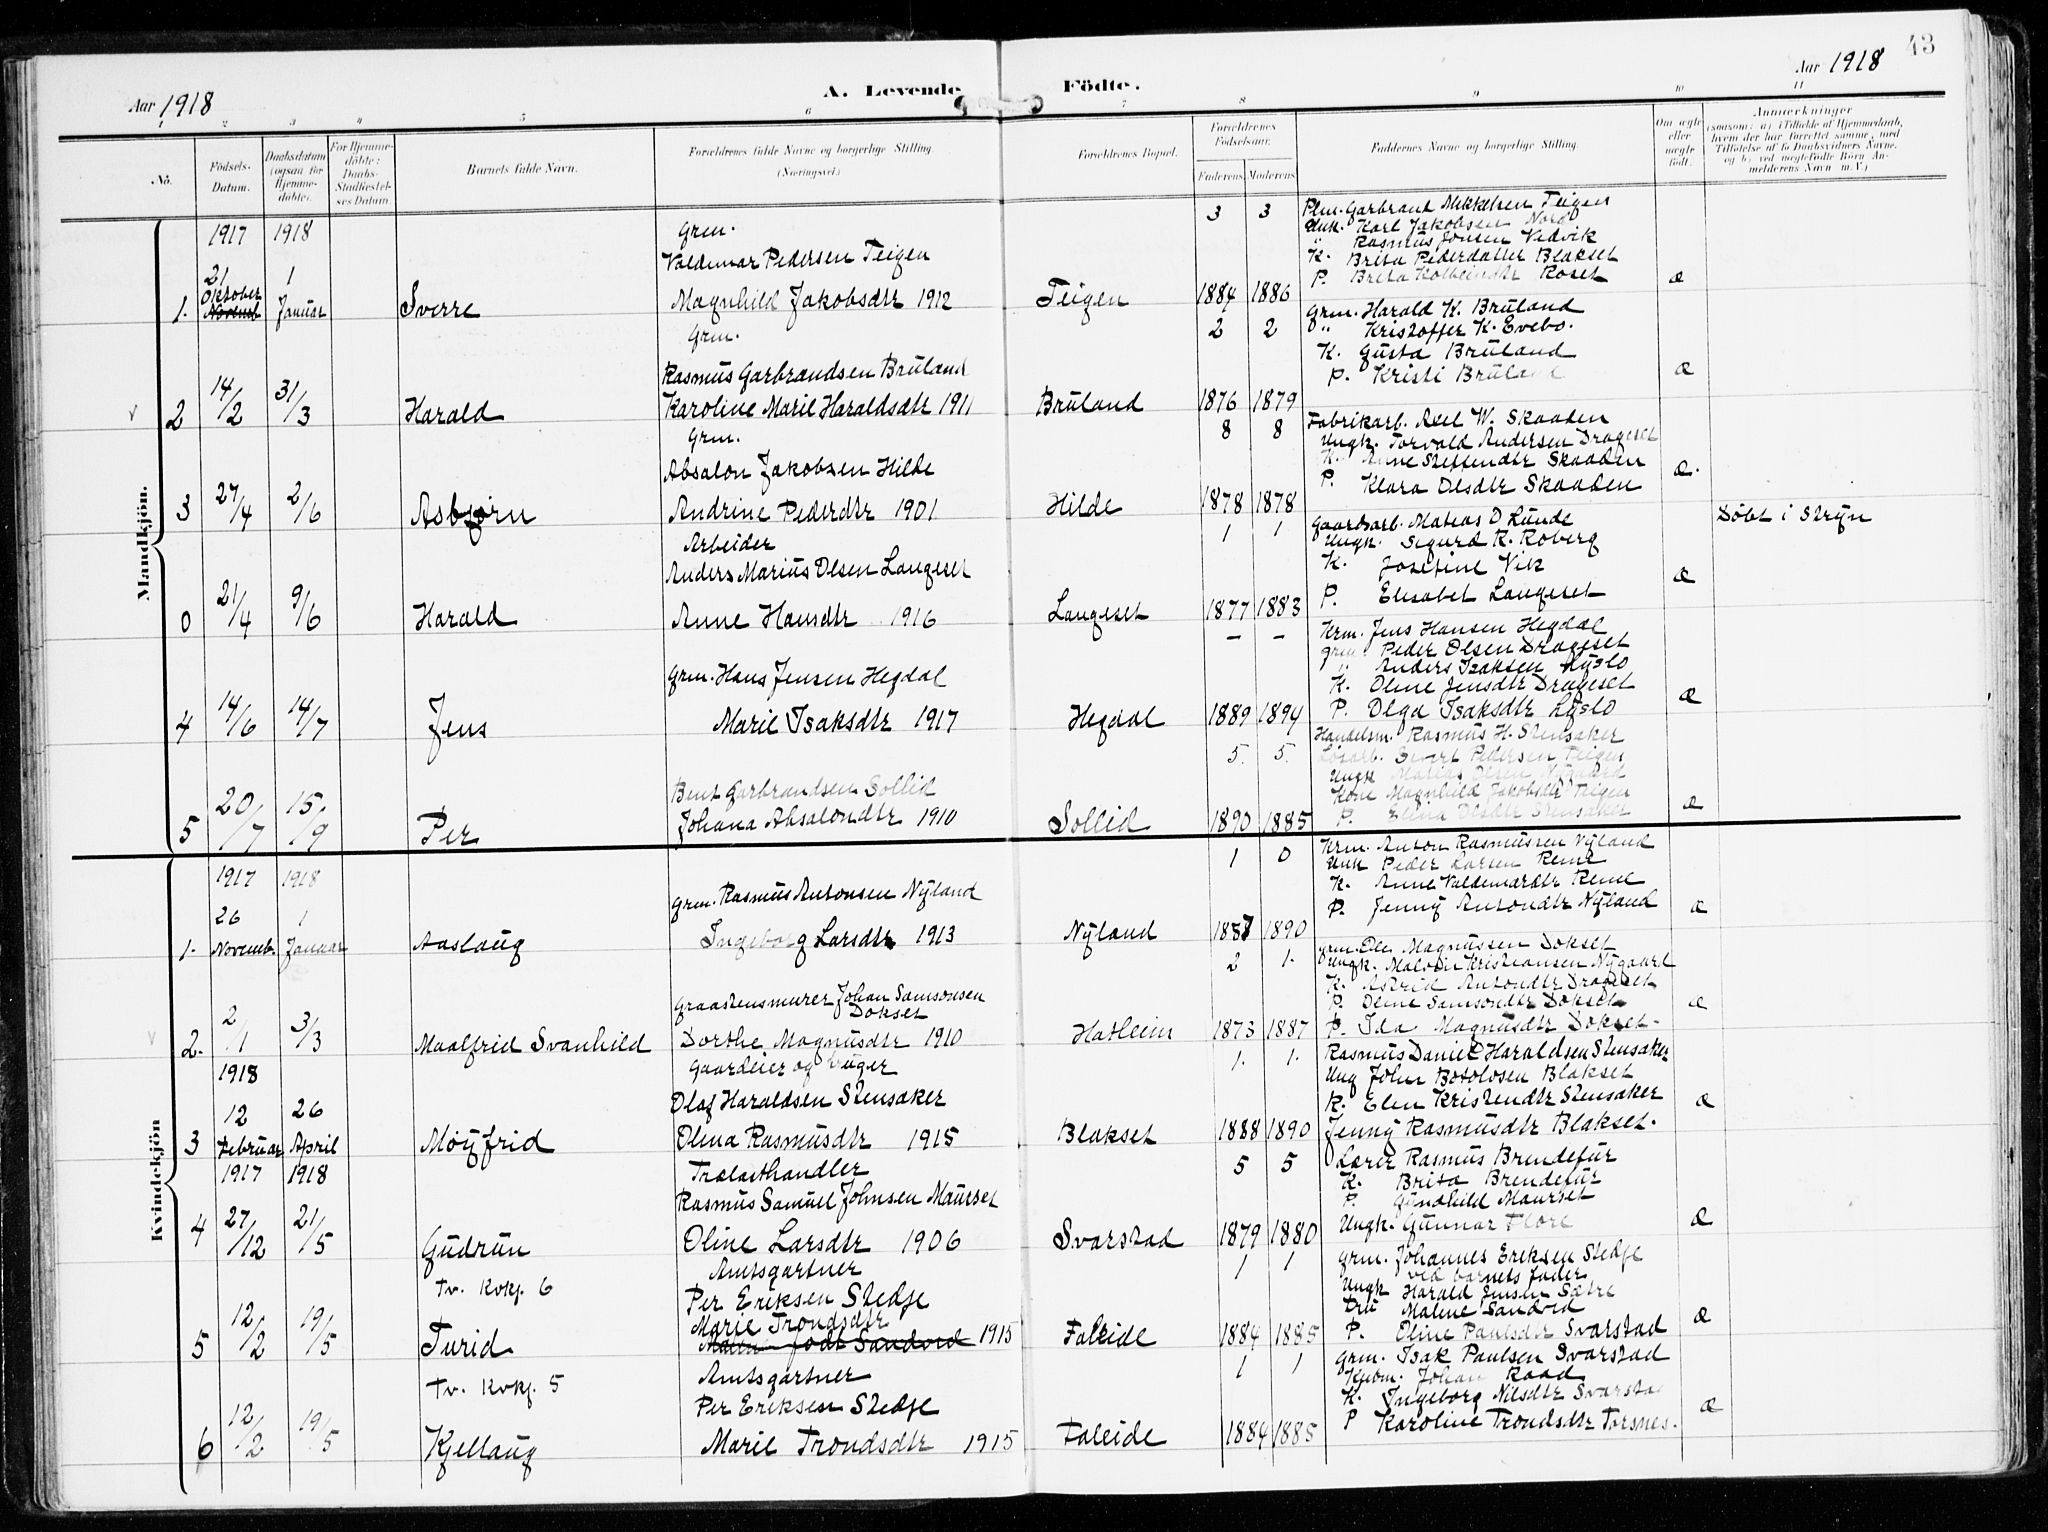 43
Aar 1918
A. Levende
Födte.
Aar 1918
1 2 3 4 5 6 7 8 9 10 11
Nö.
Födsels-
Datum.
Daabsdatum
(ogsaa for
Hjemme-
döbte).
For Hjemme-
döbte:
Daabs-
Stadfæstel-
ses Datum.
Barnets fulde Navn.
Forældrenes fulde Navne og borgerlige Stilling.
(Næringsvei.)
Forældrenes Bopæl.
Forældrenes
Födselsaar.
Faderens.
Moderens.
Faddernes Navne og borgerlige Stilling.
Om ægte
eller
uægte
födt.
Anmærkninger
(saasom: a) i Tilfælde af Hjemmedaab,
hvem der har forrettet samme, med
Tilföielse af to Daabsvidners Navne,
og b) ved uægtefödte Börn An-
melderens Navn m. V.)
Mandkjön.
1917 1918
21 1
Oktober
1. Novemb Januar Sverre
Grm.
Valdemar Pedersen Teigen
Magnhild Jakobsdtr 1912
Teigen
3 3
1884 1886
Plm. Garbrand Mikkelsen Teigen
Unk. Karl Jakobsen Nord
" Rasmus Jonsen Vedvik
K. Brita Pedersdatter Blakset
P. Brita Kolbeindtr Roset
Æ
2 14/2 31/3 Harald
Grm.
Rasmus Garbrandsen Bruland
Karoline Marie Haraldsdtr 1911
Bruland
2 2
1876 1879
Grm. Harald K. Bruland
" Kristoffer K. Evebø.
K. Gusta Bruland
P. Kristi Bruland
Æ
3 27/4 2/6 Asbjørn
Grm.
Absalon Jakobsen Hilde
Andrine Pederdtr 1901
Hilde
8 8
1878 1878
Fabrikarb. Axel W. Skaaden
Ungk. Torvald Andersen Drageset
K. Anne Steffendtr Skaaden
P. Klara Olsdtr Skaaden
Æ.
0 21/4 9/6 Harald
Arbeider
Anders Marius Olsen Langeset
Anne Hansdtr 1916
Langeset
1 1
1877 1883
Gaardsarb. Matias O Lunde
Ungk. Sigurd R. Roberg
K. Josefine Vik
P. Elisabet Langeset
Æ
Døbt i Stryn
4 14/6 14/7 Jens
Grm. Hans Jensen Hegdal
Marie Isaksdtr 1917
Hegdal
– –
1889 1894
Krm. Jens Hansen Hegdal
Grm. Peder Olsen Drageset
" Anders Isaksen Lyslo
K. Oline Jensdtr Drageset
P. Olga Isaksdtr Lyslo
Æ
5 20/7 15/9 Per
Bent Garbrandsen Sollid
Johana Absalondtr 1910
Sollid
5. 5.
1890 1885
Handelsm. Rasmus H. Stensaker
Løsarb. Sivert Pedersen Teigen
Ungk Matias Olsen Nygaard
Kone Magnhild Jakobsdtr Teigen
P. Elina Olsdtr Stensaker
Æ
Kvindekjön
1917 1918
26 1
1. Novemb. Januar Aaslaug
Grm. Rasmus Antonsen Nyland
Ingeborg Larsdtr 1913
Nyland
1 0
1887 1890
Krm. Anton Rasmussen Nyland
Unk Peder Larsen Reme
K. Anne Valdemardtr Reme
P. Jenny Antondtr Nyland
Æ
2. 2/1 3/3 Maalfrid Svanhild
Graastensmurer Johan Samsonsen
Dokset
Dorthe Magnusdtr 1910
Hatleim
2 1.
1873 1887
Grm. Ole Magnussen Dokset
Ungk. Malvin Kristiansen Nygaard
K. Astrid Antondtr Drageset
P. Oline Samsondtr Dokset
P. Ida Magnusdtr Dokset.
Æ
1918
12 26
3 Februar April Møyfrid
Gaardeier og bruger
Olaf Haraldsen Stensaker
Olina Rasmusdtr 1915
Blakset
1. 1.
1888 1890
Rasmus Daniel Haraldsen Stensaker
Ung John Botolvsen Blakset
K. Elen Kristendtr Stensaker
Jenny Rasmusdtr Blakset.
Æ
1917 1918
4 27/12 21/5 Gudrun
Trælasthandler
Rasmus Samuel Johnsen Maurset
Oline Larsdtr 1906
Svarstad
5 5
1879 1880
Lærer Rasmus Brendefur
K. Brita Brendefur
P. Gundhild Maurset
Ungk. Gunnar Flore
Æ
Tv. Kvkj. 6
5 12/2 19/5 Turid
Amtsgartner
Per Eriksen Stedje
Marie Trondsdtr
født Sandvid 1915
Faleide
1 1
1884 1885
Grm. Johannes Eriksen Stedje
ved barnets fader
Ungk Harald Jensen Sætre
Fru Malene Sandvid
P. Oline Paulsdtr Svarstad
Æ
Tv. Kvkj. 5
6 12/2 19/5 Kjellaug
Amtsgartner
Per Eriksen Stedje
Marie Trondsdtr 1915
Faleide
1 1
1884 1885
Grm. Isak Paulsen Svarstad
Johan Raad
K. Ingeborg Nilsdtr Svarstad
P Karoline Trondsdtr Torsnes.
Æ